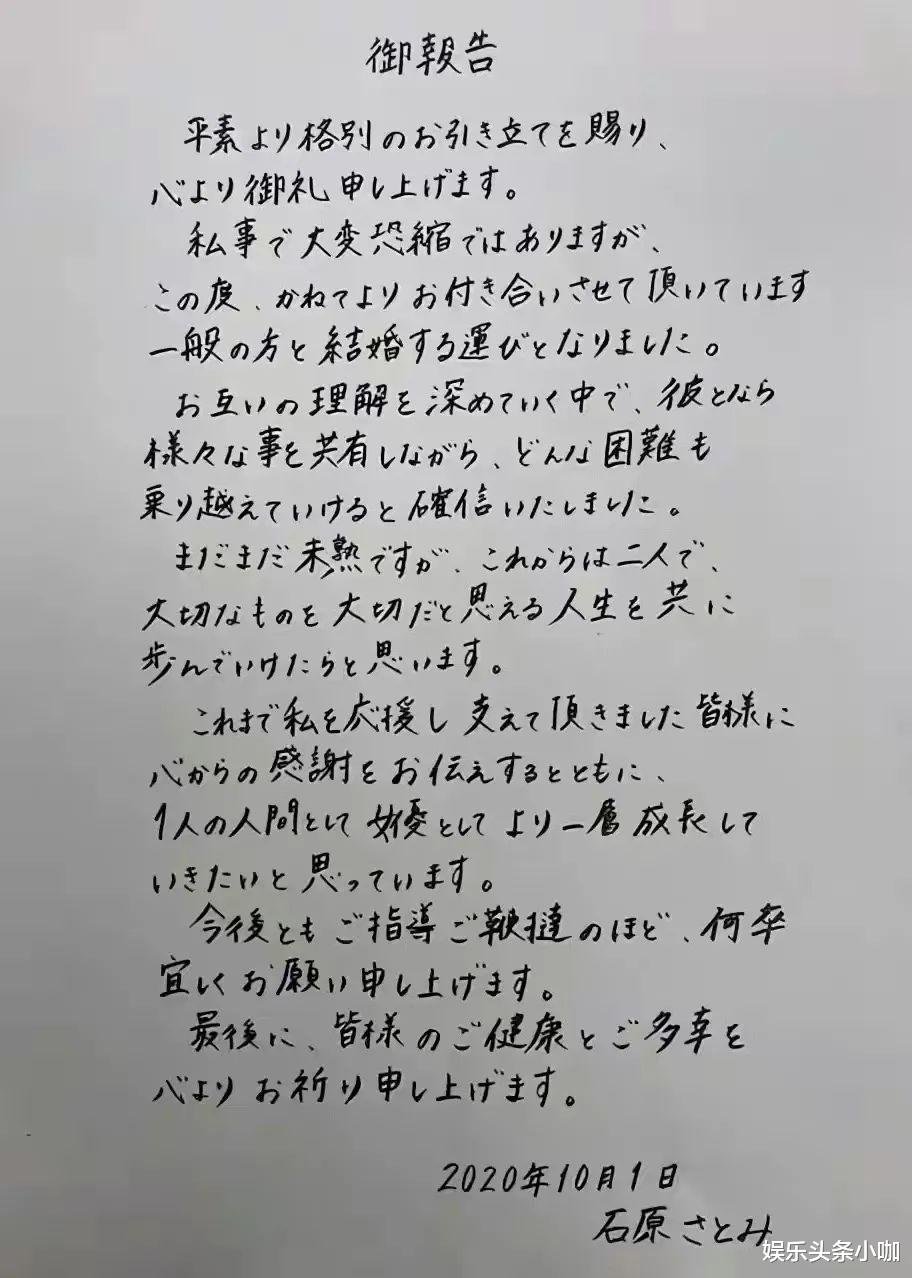 御報告
平素より格別のお引き立てを賜り、
心より御礼申し上げます。
私事で大変恐縮ではありますが、
この度、かねてよりお付き合いさせて頂いています
一般の方と結婚する運びとなりました。
お互いの理解を深めていく中で、彼となら
様々な事を共有しながら、どんな困難も
乗り越えていけると確信いたしました。
まだまだ未熟ですが、これからは二人で、
大切なものを大切だと思える人生を共に
歩んでいけたらと思います。
これまで私を応援し支えて頂きました皆様に
心からの感謝をお伝えするとともに、
1人の人間として女優としてより一層成長して
いきたいと思っています。
今後ともご指導ご鞭撻のほど、何卒
宜しくお願い申し上げます。
最後に、皆様のご健康とご多幸を
心よりお祈り申し上げます。
2020年10月1日
石原さとみ
娱乐头条小咖